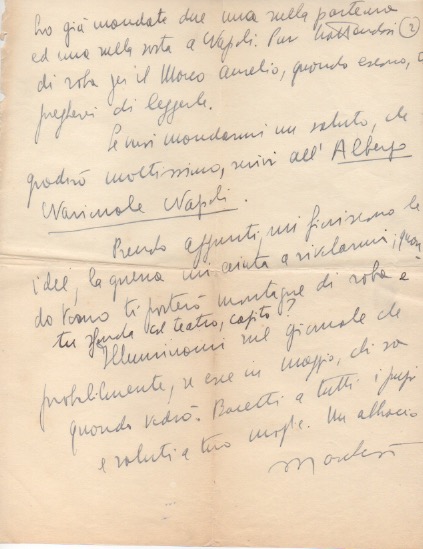 ho già mandate due una sulla partenza
ed una sulla sosta a Napoli. Pur trattandosi (2)
di roba per il Marco Aurelio, quando escono,
pregherei di leggerle.
Se vuoi mandarmi un saluto, che
gradirò moltissimo, scrivi all'Albergo
Nazionale Napoli.
Prendo appunti, mi fioriscono le
idee, la guerra mi aiuta a rivelarmi; quan
do torno ti porterò montagne di roba e
tu sfonda col teatro, capito?
Illuminami sul giornale che
probabilmente, se esce in maggio, di
quando vedrò. Bacetti a tutti i pupi
e saluti a tua moglie. Un abbraccio